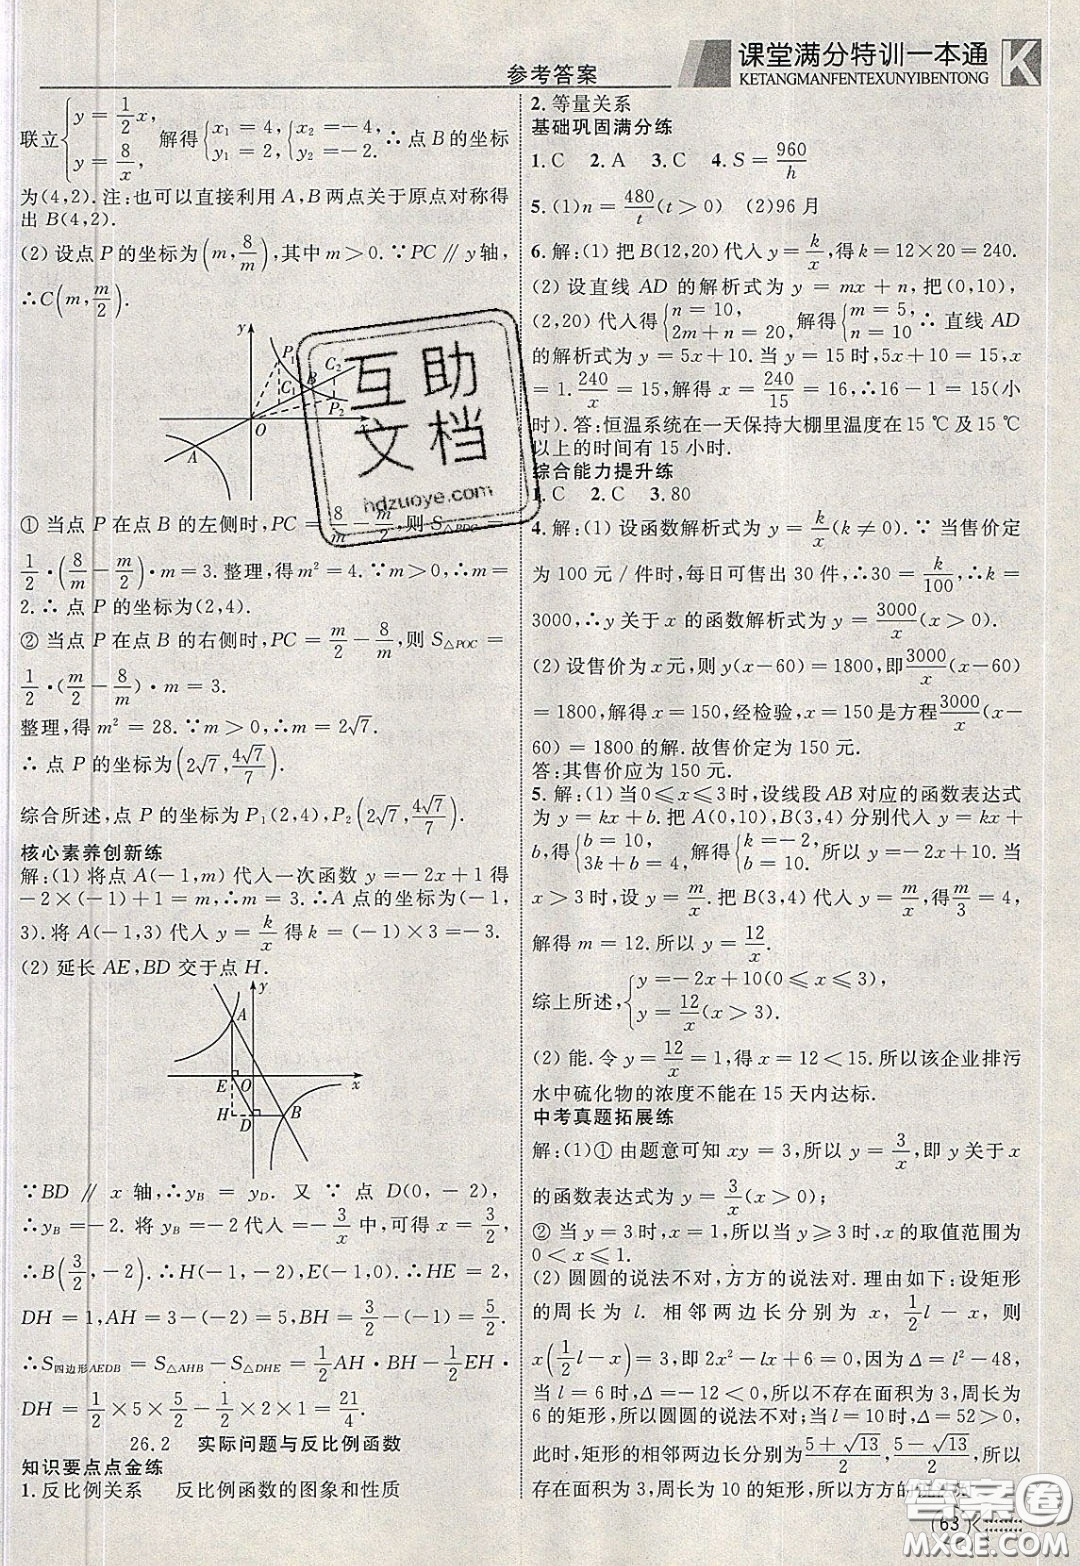 课堂满分特训一本通
KETANGMANFENTEXUNYIBENTONG
K
参考答案
联立{y=1/2x, y=8/x, 解得{x₁=4, y₁=2, {x₂=-4, y₂=-2. ∴点B的坐标
为(4,2).注:也可以直接利用A,B两点关于原点对称得
出B(4,2).
(2)设点P的坐标为(m,8/m),其中m>0.∵PC∥y轴,
∴C(m,m/2).
y
P₁
C₂
C₁
B
P₂
O
x
A
①当点P在点B的左侧时,PC=8/m-m/2,则S△POC=
1/2·(8/m-m/2)·m=3.整理,得m²=4.∵m>0,∴m=
2.∴点P的坐标为(2,4).
②当点P在点B的右侧时,PC=m/2-8/m,则S△POC=
1/2·(m/2-8/m)·m=3.
整理,得m²=28.∵m>0,∴m=2√7.
∴点P的坐标为(2√7,4√7/7).
综合所述,点P的坐标为P₁(2,4),P₂(2√7,4√7/7).
核心素养创新练
解:(1)将点A(-1,m)代入一次函数y=-2x+1得
-2×(-1)+1=m,∴m=3.∴A点的坐标为(-1,
3).将A(-1,3)代入y=k/x得k=(-1)×3=-3.
(2)延长AE,BD交于点H.
y
A
E
O
x
H
D
B
∵BD∥x轴,∴y_B=y_D.又∵点D(0,-2),
∴y_B=-2.将y_B=-2代入=-3/x中,可得x=3/2,
∴B(3/2,-2).∴H(-1,-2),E(-1,0).∴HE=2,
DH=1,AH=3-(-2)=5,BH=3/2-(-1)=5/2.
∴S四边形AEDB=S△AHB-S△DHE=1/2AH·BH-1/2EH·
DH=1/2×5×5/2-1/2×2×1=21/4.
26.2 实际问题与反比例函数
知识要点点金练
1.反比例关系 反比例函数的图象和性质
2.等量关系
基础巩固满分练
1.C 2.A 3.C 4.S=960/h
5.(1)n=480/t(t>0) (2)96月
6.解:(1)把B(12,20)代入y=k/x,得k=12×20=240.
(2)设直线AD的解析式为y=mx+n,把(0,10),
(2,20)代入得{n=10, 2m+n=20, 解得{m=5, n=10 ∴直线AD
的解析式为y=5x+10.当y=15时,5x+10=15,x
=1.240/x=15,解得x=240/15=16,∴16-1=15(小
时).答:恒温系统在一天保持大棚里温度在15℃及15℃
以上的时间有15小时.
综合能力提升练
1.C 2.C 3.80
4.解:(1)设函数解析式为y=k/x(k≠0).∵当售价定
为100元/件时,每日可售出30件,∴30=k/100,∴k=
3000,∴y关于x的函数解析式为y=3000/x(x>0).
(2)设售价为x元,则y(x-60)=1800,即3000/x(x-60)
=1800,解得x=150,经检验,x=150是方程3000/x(x-
60)=1800的解.故售价定为150元.
答:其售价应为150元.
5.解:(1)当0≤x≤3时,设线段AB对应的函数表达式
为y=kx+b.把A(0,10),B(3,4)分别代入y=kx+
b,得{b=10, 3k+b=4, 解得{k=-2, b=10. 所以y=-2x+10.当
x>3时,设y=m/x.把B(3,4)代入y=m/x,得m/3=4,
解得m=12.所以y=12/x.
综上所述,{y=-2x+10(0≤x≤3), y=12/x(x>3).
(2)能.令y=12/x=1,得x=12<15.所以该企业排污
水中硫化物的浓度不能在15天内达标.
中考真题拓展练
解:(1)①由题意可知xy=3,所以y=3/x,即y关于x
的函数表达式为y=3/x(x>0);
②当y=3时,x=1,所以当y≥3时,x的取值范围为
0<x≤1.
(2)圆圆的说法不对,方方的说法对.理由如下:设矩形
的周长为l.相邻两边长分别为x,1/2l-x,则
x(1/2l-x)=3,即2x²-lx+6=0,因为Δ=l²-48,
当l=6时,Δ=-12<0,所以不存在面积为3,周长为
6的矩形,所以圆圆的说法不对.当l=10时,Δ=52>0,
此时,矩形的相邻两边长分别为(5+√13)/2,(5-√13)/2,所以
存在面积为3,周长为10的矩形,所以方方的
63
互助文档
hdzuoye.com
答案圈
MXQE.COM